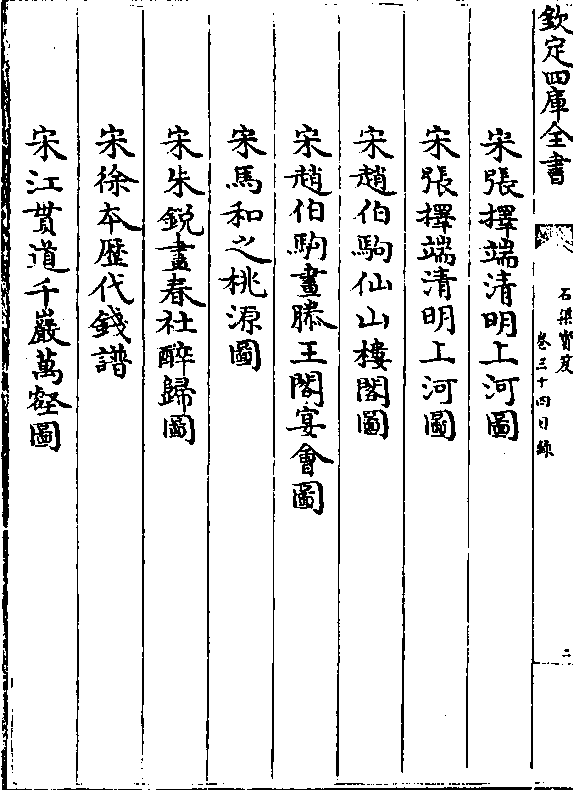 欽定四庫全書
石渠寶笈
卷三十四目錄
二
宋張擇端清明上河圖
宋張擇端清明上河圖
宋趙伯駒仙山樓閣圖
宋趙伯駒畫滕王閣宴會圖
宋馬和之桃源圖
宋朱銳畫春社醉歸圖
宋徐本歴代錢譜
宋江貫道千巖萬壑圖